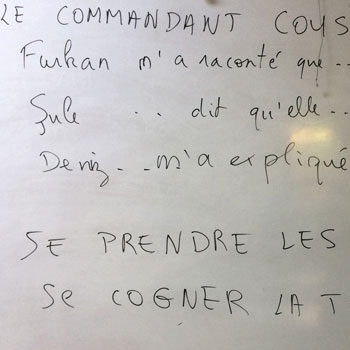 LE COMMANDANT COUS
Furkan m'a raconté que..
Şule .. dit qu'elle..
Deniz..m'a expliqué
SE PRENDRE LES
SE COGNER LA T